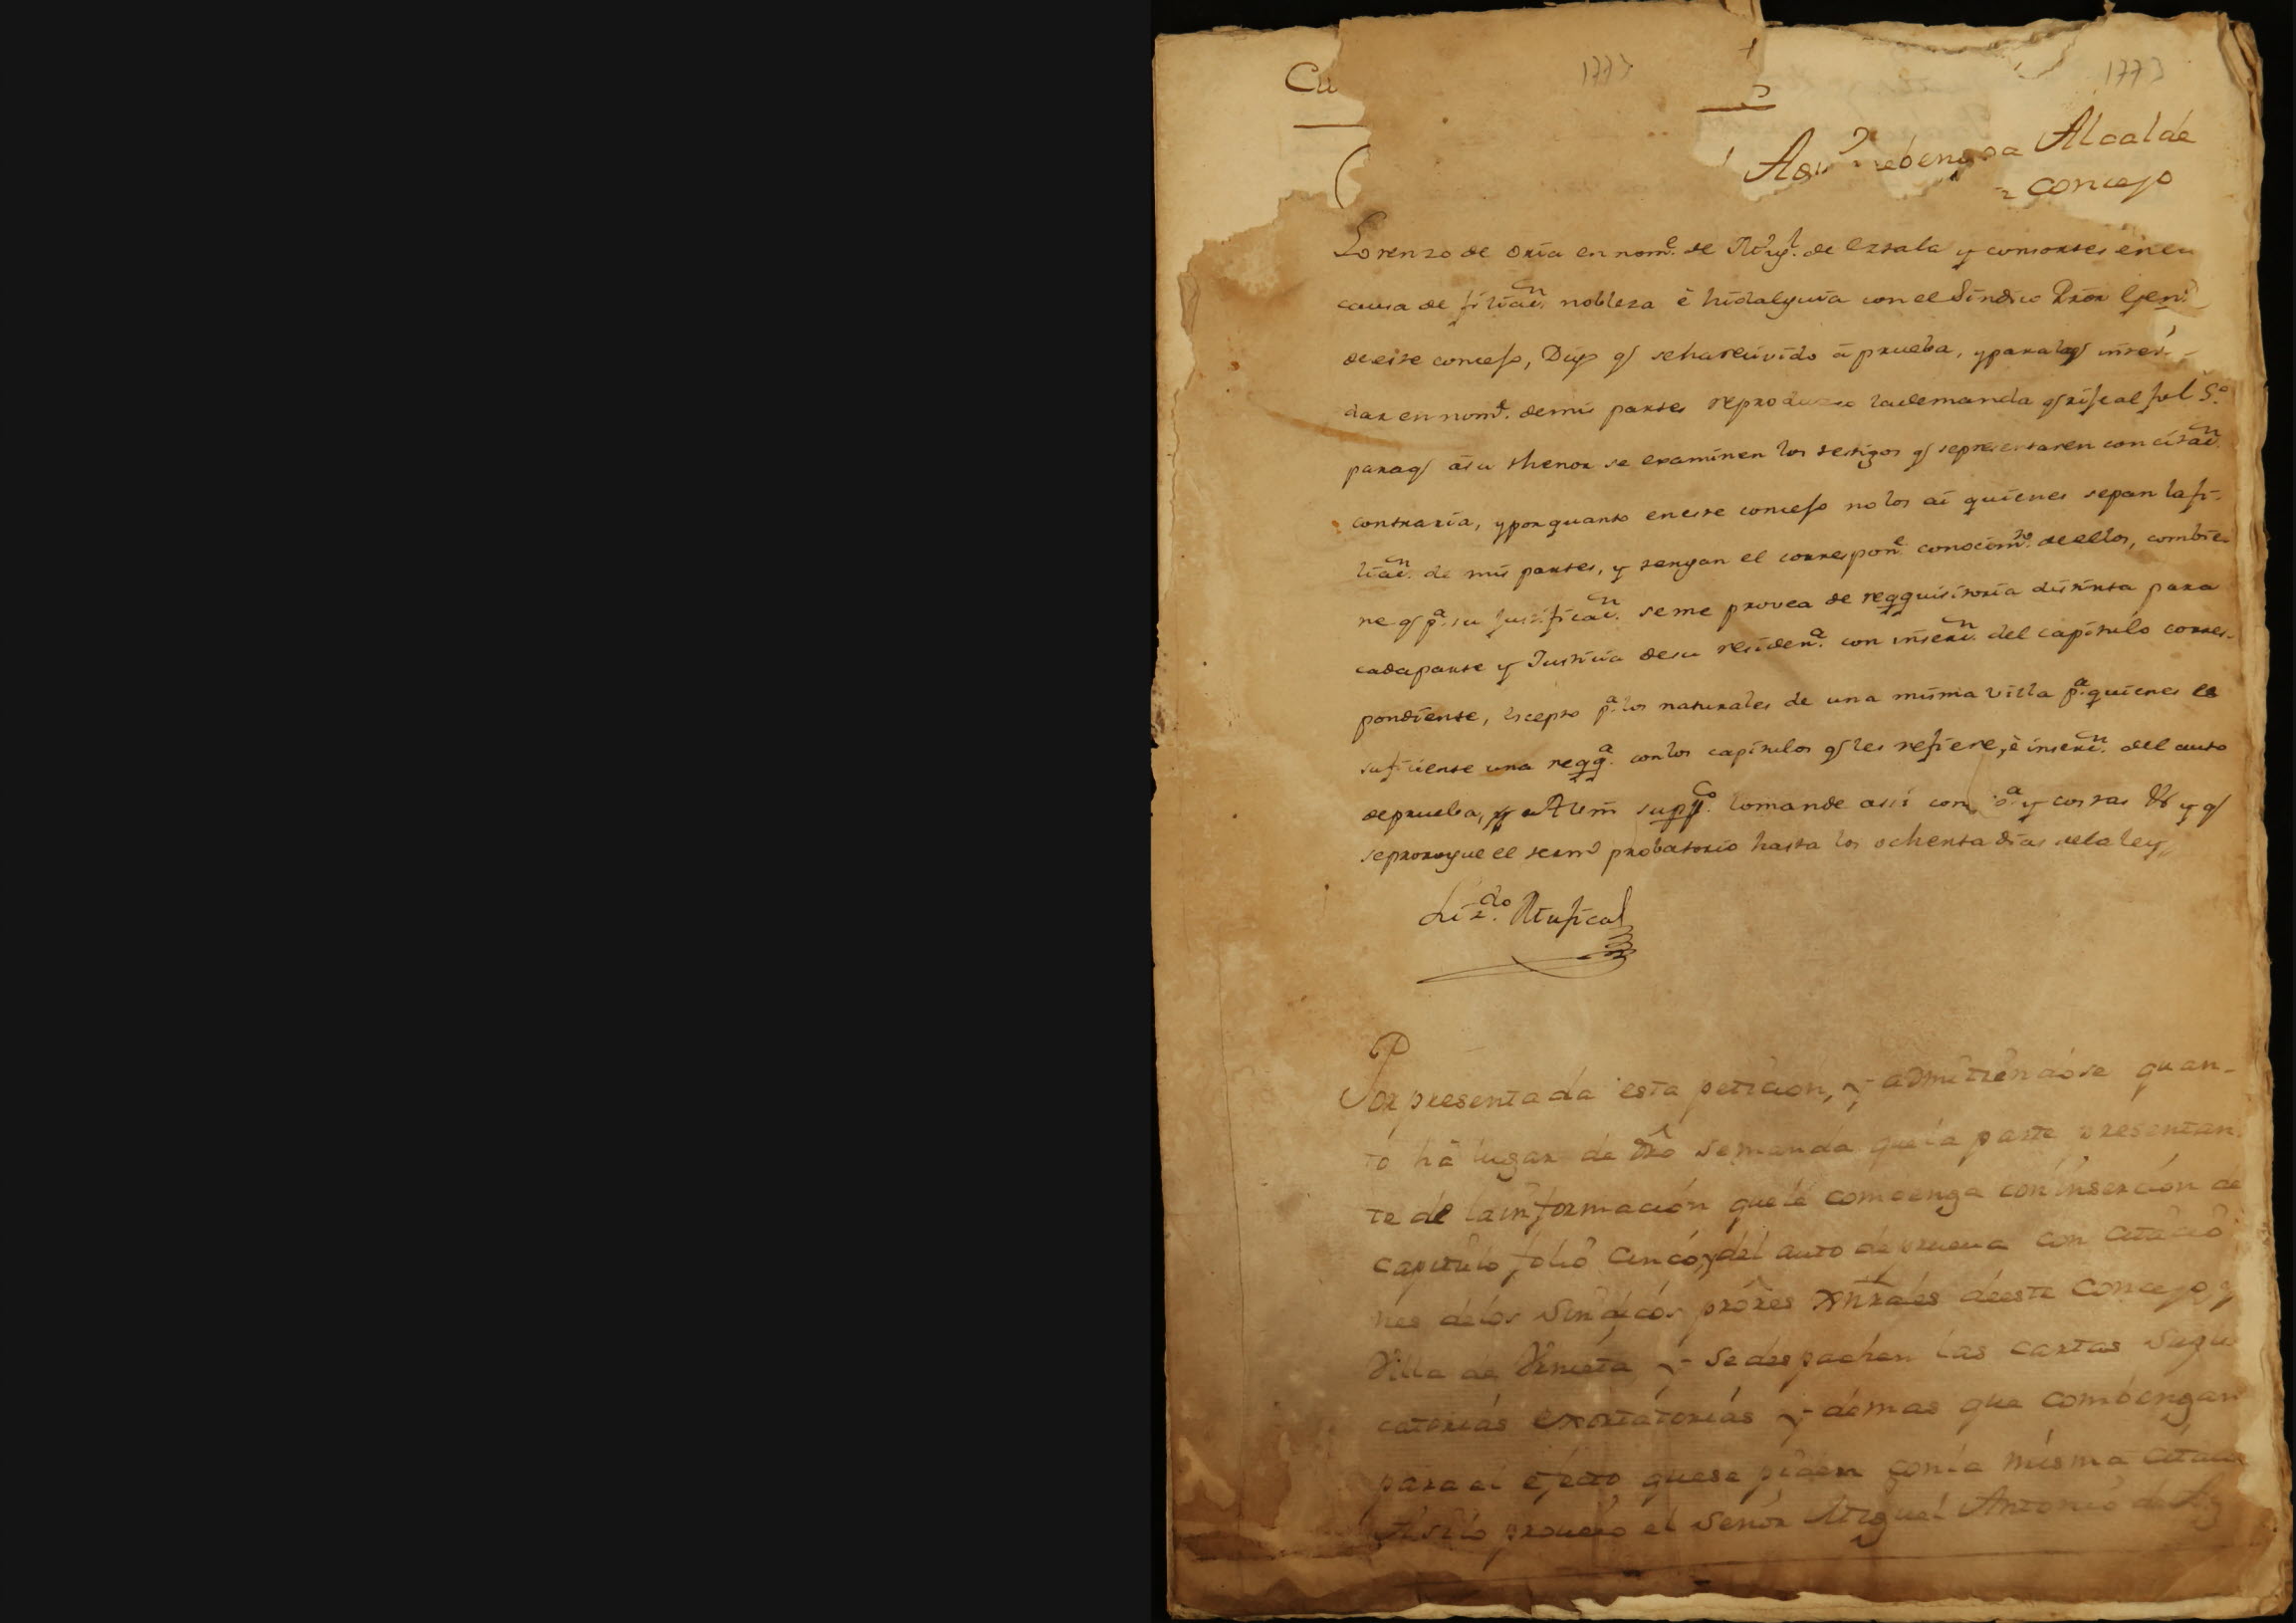 Cu
1773 1773
Alcalde
concejo
Lorenzo de oria en nom.e de Mig.l de Ersala y consortes en su
causa de filiac.n nobleza è hidalguia con el Sindico Pror Gen.l
de este concejo, Digo q se ha recivido à prueba, y para la q
dar en nom.e de mis partes reproduzco la demanda q rije al fol 5.o
para q à su thenor se examinen los testigos q se presentaren con citac.n
contraria, y por quanto en este concejo no los ai quienes sepan la fi-
liac.n de mis partes, y tengan el correspon.te conocim.to de ellos, combie-
ne q p.a su justificac.n se me provea de reqquisitoria distinta para
cada parte y Justicia de su residen.a con inserc.n del capitulo corres-
pondiente, excepto p.a los naturales de una misma villa p.a quienes es
suficiente una reqq.a con los capitulos q les refiere, è inserc.n del auto
de prueba, y a Vm supp.co lo mande assi con y costas &.a y q
se prorrogue el term.o probatorio hasta los ochenta dias de la ley
Liz.do
Por presentada esta peticion, y admitiendose quan-
to hà lugar de dro se manda que la parte presentan
te dè la informaciòn que le combenga con inserciòn de
capitulo folio cinco, y del auto de prueva con citacio
nes de los Sindicos prores xnrales de este Concejo y
Villa de Vrnieta y se despachen las cartas Supli
catorias exortatorias y demas que combengan
para el efecto que se piden con la misma citacio
Assi lo proveiò el Señor Miguel Antonio de